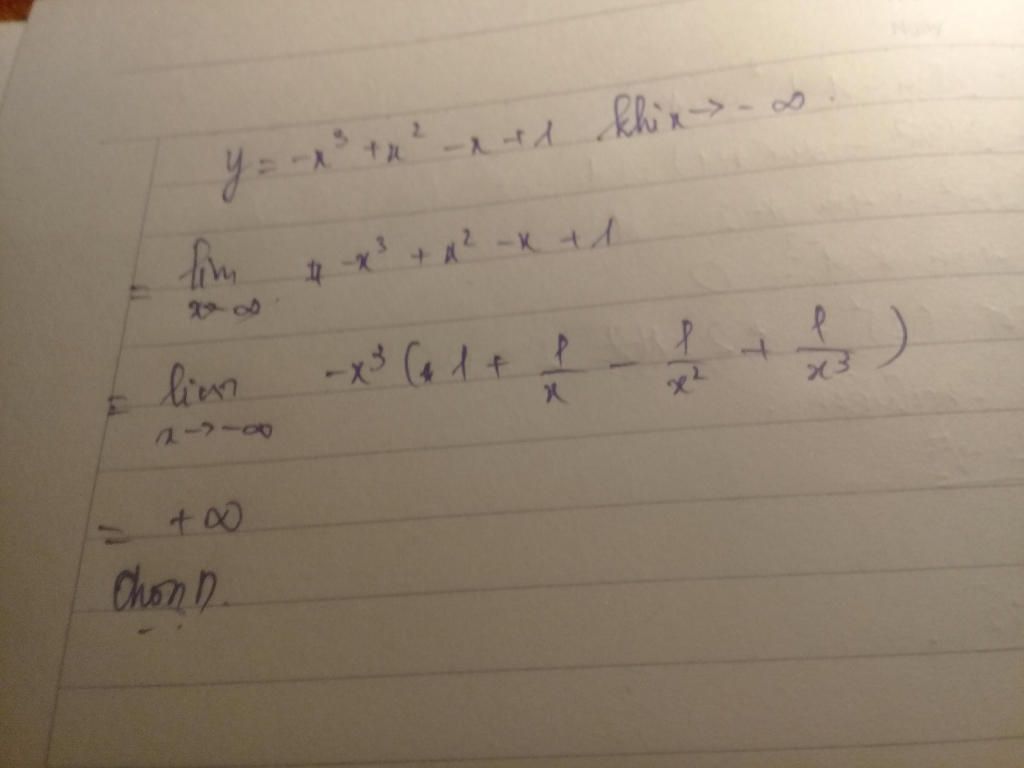 y = -x³ + x² - x + 1 khi x → -∞.
= lim x→-∞ -x³ + x² - x + 1
= lim x→-∞ -x³ (1 + 1/x - 1/x² + 1/x³)
= +∞
Chọn D.